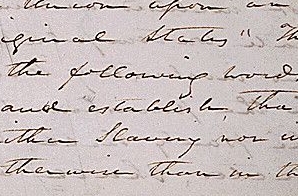 Union upon an
iginal States" Th
the following word
and establish tha
ither Slavery nor i
therwise than in th